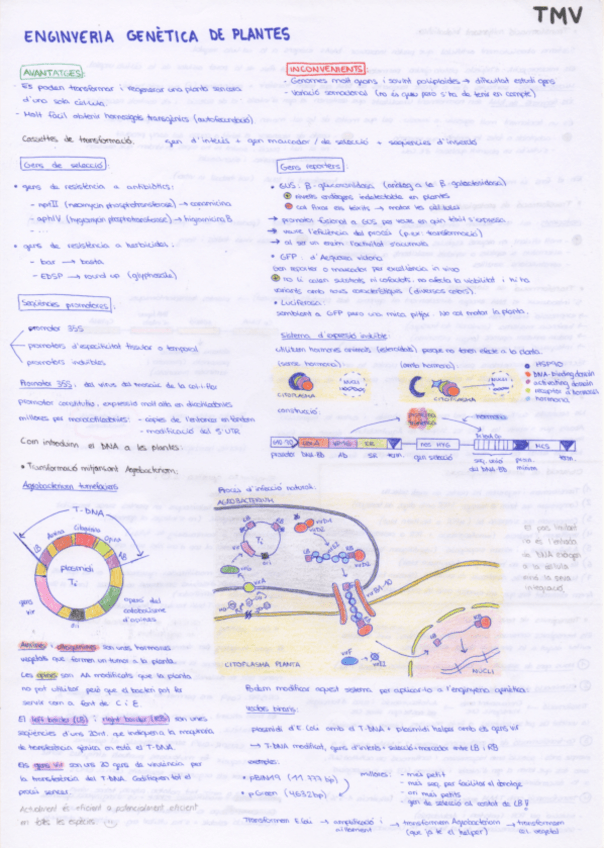 TMV
ENGINYERIA GENÈTICA DE PLANTES
AVANTATGES:
- Es poden transformar i regenerar una planta sencera
d'una sola cèl·lula.
- Molt fàcil obtenir homozigots transgènics (autofecundació)
INCONVENIENTS:
- Genomes molt grans i sovint poliploides → dificultat estudi gens
- Variació somaclonal (no és greu però s'ha de tenir en compte)
Cassettes de transformació: gen d'interès + gen marcador / de selecció + seqüències d'inserció
Gens de selecció:
• gens de resistència a antibiòtics:
- nptII (neomycin phosphotransferase) → kanamicina
- aphIV (hygromycin phosphotransferase) → higromicina B
- ...
• gens de resistència a herbicides:
- bar → basta
- EDSP → round up (glyphosate)
Gens reporters:
• GUS: β-glucuronidasa (anàleg a la β-galactosidasa)
nivells endògens indetectables en plantes
cal fixar els teixits → matar les cèl·lules
→ promotor fusionat a GUS per veure en quin teixit s'expressa.
→ veure l'eficiència del procés (p.ex. transformació)
→ al ser un enzim l'activitat s'acumula
• GFP: d'Aequorea victoria
Gen reporter o marcador per excel·lència in vivo
no li calen substrats ni cofactors, no afecta la viabilitat i hi ha
variants amb noves característiques (diversos colors).
• Luciferasa:
semblant a GFP però una mica pitjor. No cal matar la planta.
Seqüències promotores:
promotor 35S
promotors d'especificitat tissular o temporal
promotors induïbles
Promotor 35S: del virus del mosaic de la col-i-flor
promotor constitutiu, expressió molt alta en dicotiledònies
millores per monocotiledònies: - còpies de l'enhancer en tàndem
- modificació del 5' UTR
Sistema d'expressió induïble:
utilitzem hormones animals (esteroides) perquè no tenen efecte a la planta.
(sense hormona)
(amb hormona)
CITOPLASMA
NUCLI
CITOPLASMA
NUCLI
HSP90
DNA-binding domain
activating domain
receptor d'hormona
hormona
construcció:
hormona
promotor
DNA-BD
AD
term.
gen selecció
promotor
mínim
MCS
term.
Com introduïm el DNA a les plantes:
• Transformació mitjançant Agrobacterium:
Agrobacterium tumefaciens
T-DNA
Auxina
Citoquinina
Opina
LB
RB
plasmidi
Ti
gens
vir
ori
gens del
catabolisme
d'opines
Procés d'infecció natural:
AGROBACTERIUM
Ti
CITOPLASMA PLANTA
NUCLI
El pas limitant
no és l'entrada
de DNA exogen
a la cèl·lula
sinó la seva
integració
Auxines i citoquinines són unes hormones
vegetals que formen un tumor a la planta.
Les opines són AA modificats que la planta
no pot utilitzar però que el bacteri pot fer
servir com a font de C i E.
El left border (LB) i right border (RB) són unes
seqüències d'uns 20nt. que indiquen a la maquinària
de transferència gènica on està el T-DNA.
Els gens vir són uns 20 gens de virulència per
la transferència del T-DNA. Codifiquen tot el
procés sencer.
Actualment és eficient o potencialment eficient
en totes les espècies
Podem modificar aquest sistema per aplicar-lo a l'enginyeria genètica:
Vectors binaris:
plasmidi d'E. coli amb el T-DNA + plasmidi helper amb els gens vir
→ T-DNA modificat, gens d'interès + selecció + marcador entre LB i RB
exemples:
• pBIN19 (11.777 bp)
• pGreen (4632bp)
millores: - més petit
- més seq. per facilitar el clonatge
- ori més petits
- gen de selecció al costat de LB!
Transformem E. coli → amplificació i aïllament → transformem Agrobacterium (que ja té el helper) → transformem cèl. vegetal